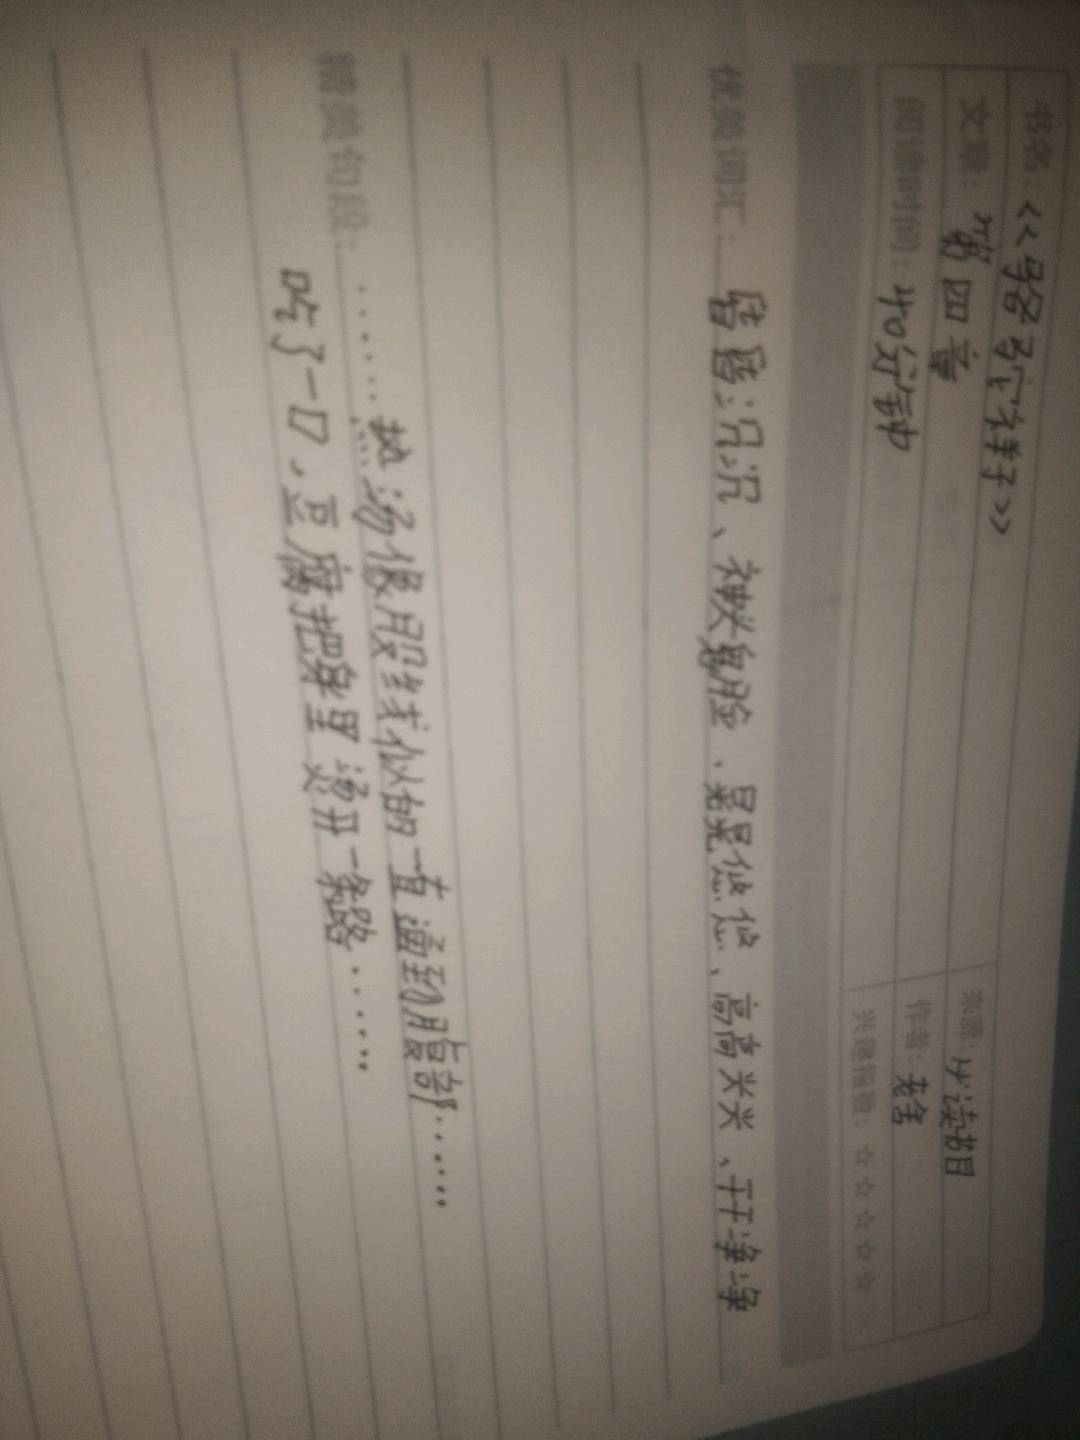 书名:<<骆驼祥子>>
文章:第四章 来源:必读书目
阅读时间:40分钟 作者:老舍
兴趣指数:☆☆☆☆☆
优美词汇:昏昏沉沉、神头鬼脸、晃晃悠悠、高高兴兴、干干净净
精美句段:......热汤像股线似的一直通到腹部......
吃了一口,豆腐把身里烫开一条路......